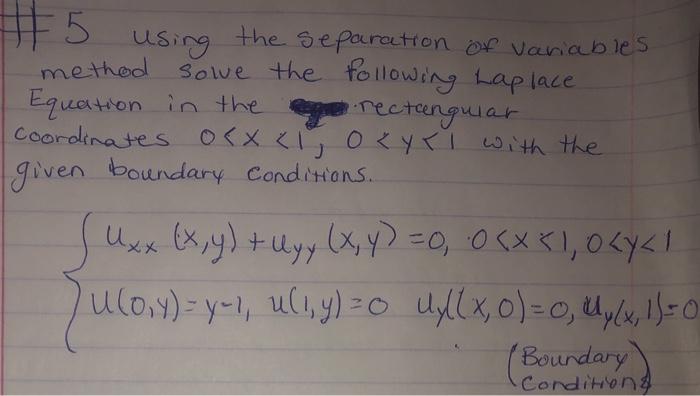 #5 using the separation of variables
method solve the following Laplace
Equation in the rectangular
coordinates 0<x<1, 0<y<1 with the
given boundary conditions.
{ Uxx (x,y) + Uyy (x,y) = 0, 0<x<1, 0<y<1
U(0,y) = y-1, u(1,y) = 0 Uy(x,0) = 0, Uy(x,1) = 0
(Boundary
Conditions)